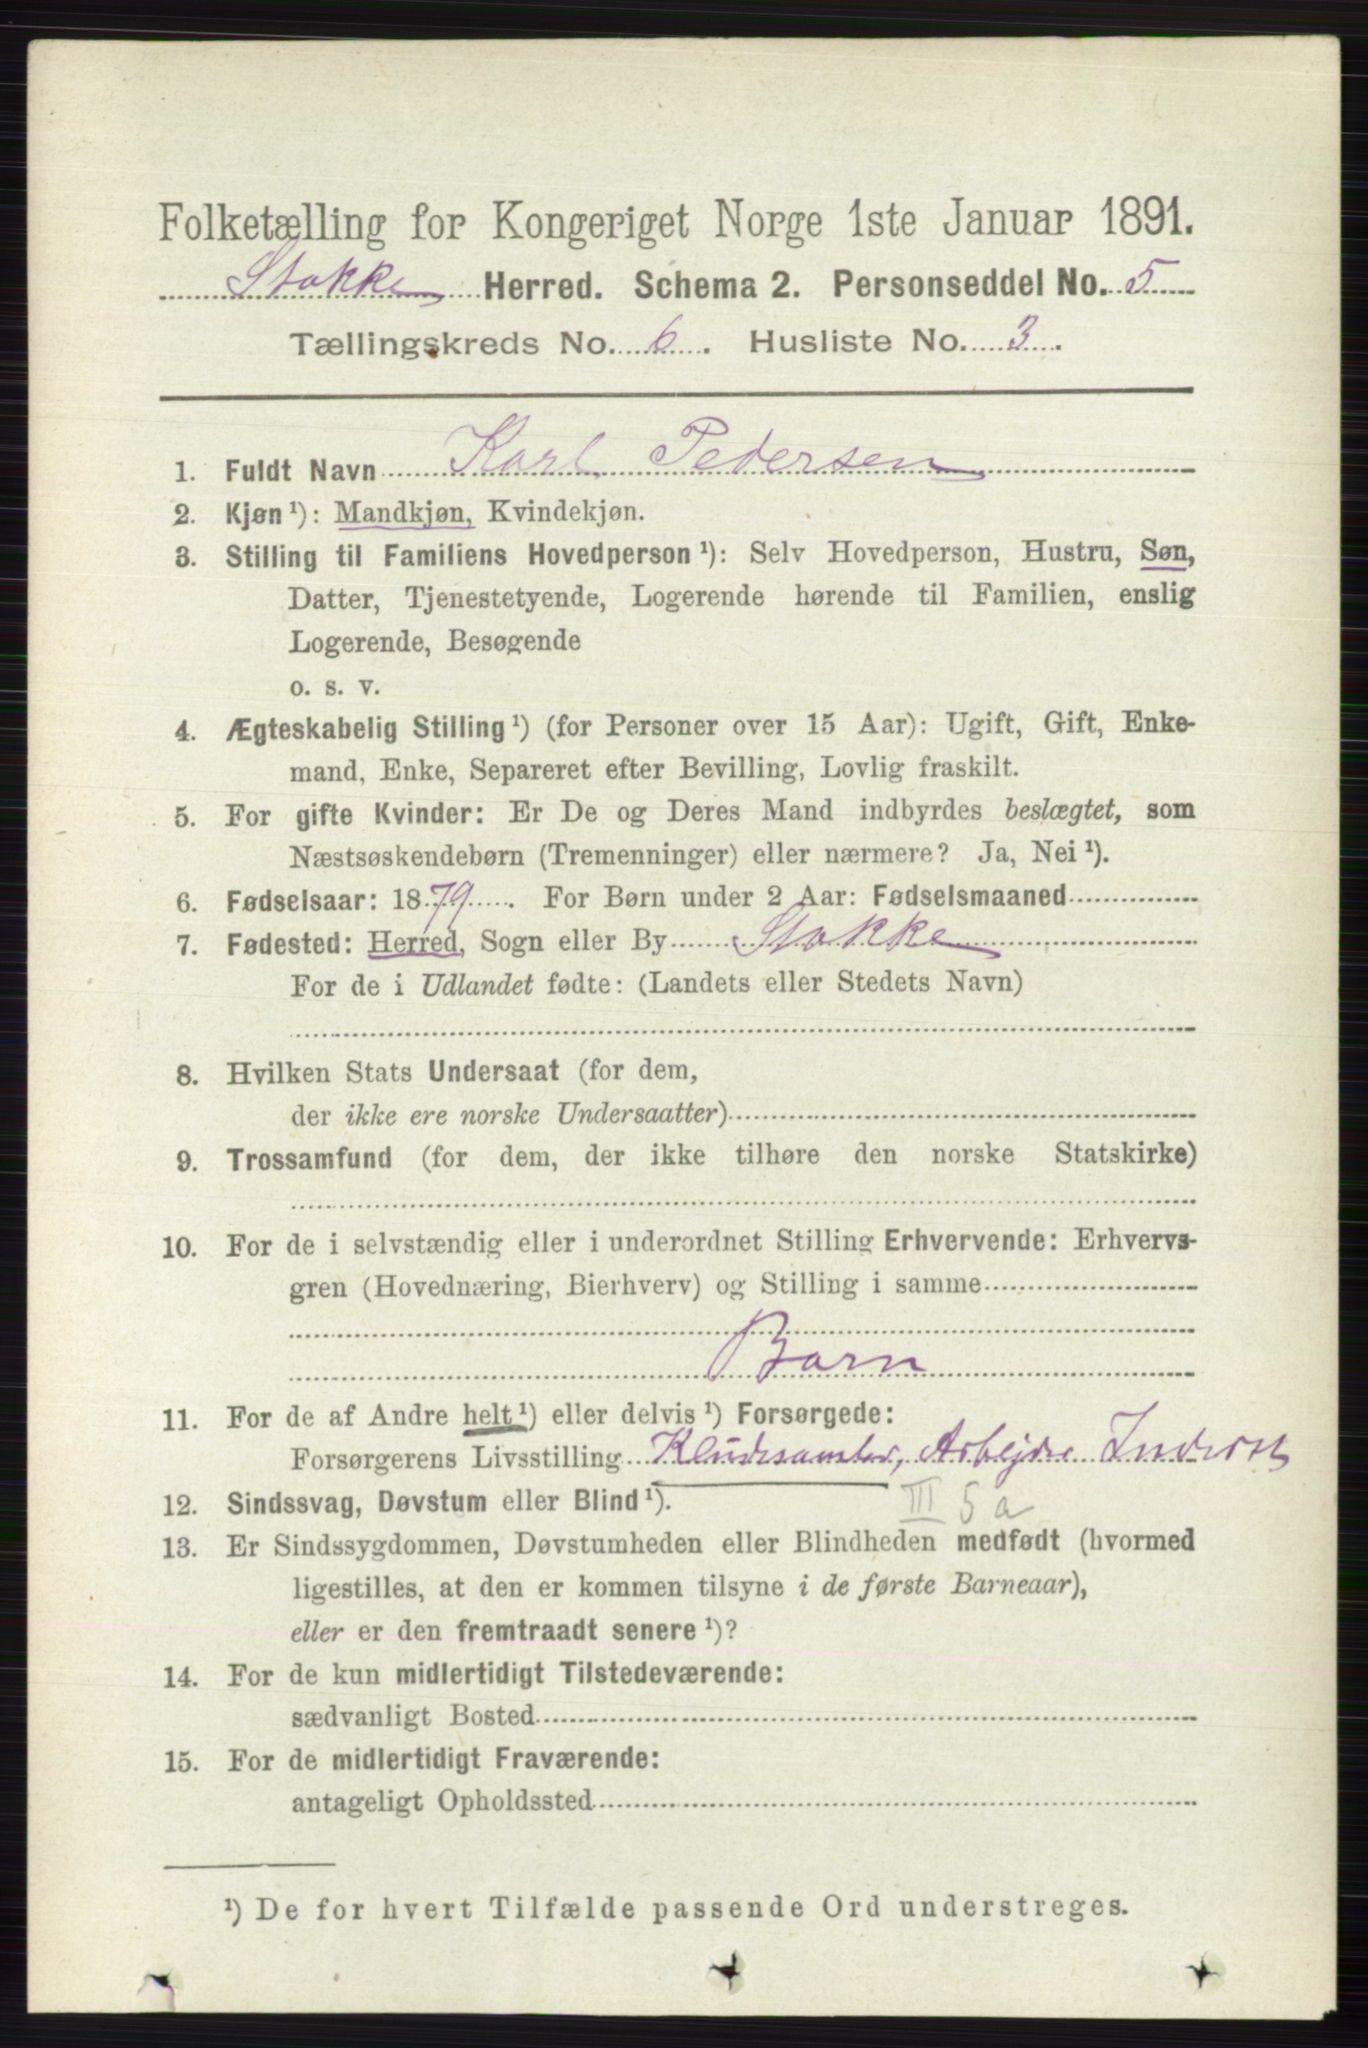 Folketælling for Kongeriget Norge 1ste Januar 1891.
Stokke Herred. Schema 2. Personseddel No. 5
Tællingskreds No. 6. Husliste No. 3.
1. Fuldt Navn Karl Pedersen
2. Kjøn ¹): Mandkjøn, Kvindekjøn.
3. Stilling til Familiens Hovedperson ¹): Selv Hovedperson, Hustru, Søn,
Datter, Tjenestetyende, Logerende hørende til Familien, enslig
Logerende, Besøgende
o. s. v.
4. Ægteskabelig Stilling ¹) (for Personer over 15 Aar): Ugift, Gift, Enke-
mand, Enke, Separeret efter Bevilling, Lovlig fraskilt.
5. For gifte Kvinder: Er De og Deres Mand indbyrdes beslægtet, som
Næstsøskendebørn (Tremenninger) eller nærmere? Ja, Nei ¹).
6. Fødselsaar: 1879. For Børn under 2 Aar: Fødselsmaaned
7. Fødested: Herred, Sogn eller By Stokke
For de i Udlandet fødte: (Landets eller Stedets Navn)
8. Hvilken Stats Undersaat (for dem,
der ikke ere norske Undersaatter)
9. Trossamfund (for dem, der ikke tilhøre den norske Statskirke)
10. For de i selvstændig eller i underordnet Stilling Erhvervende: Erhvervs-
gren (Hovednæring, Bierhverv) og Stilling i samme
Barn
11. For de af Andre helt ¹) eller delvis ¹) Forsørgede:
Forsørgerens Livsstilling Kludesamler, Arbejder
12. Sindssvag, Døvstum eller Blind ¹). III 5a
13. Er Sindssygdommen, Døvstumheden eller Blindheden medfødt (hvormed
ligestilles, at den er kommen tilsyne i de første Barneaar),
eller er den fremtraadt senere ¹)?
14. For de kun midlertidigt Tilstedeværende:
sædvanligt Bosted
15. For de midlertidigt Fraværende:
antageligt Opholdssted
¹) De for hvert Tilfælde passende Ord understreges.